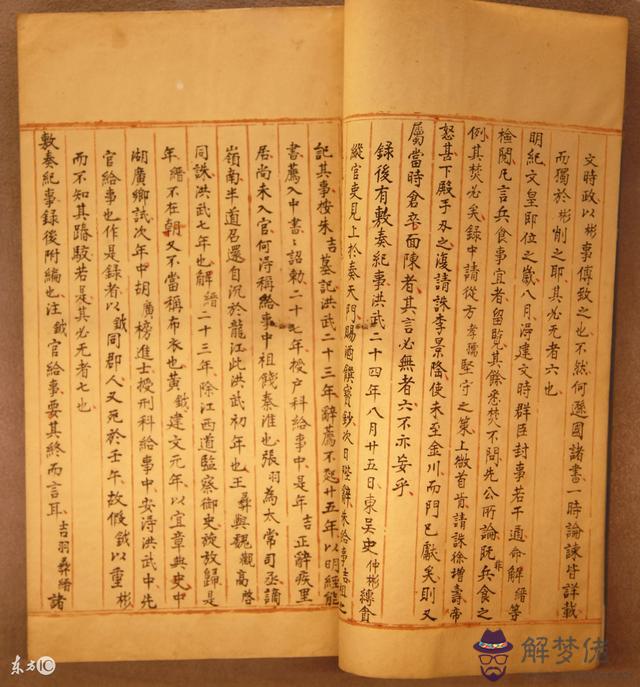 文時政以彬事傅致之也不然何遜國諸書一時論諫皆詳載
而獨於彬削之耶其必无者六也
明紀文皇即位之歲八月淂建文時群臣封事若干通命解縉等
檢閱凡言兵食事宜者留覽其餘悉焚不問先公所論既非兵食之
例其焚必矣録中請從方孝孺堅守之策上微首肯請誅徐增壽帝
怒甚下殿手刃之復請誅李景隆使未至金川而門已獻矣則又
屬當時倉卒面陳者其言必無者六不亦妄乎
録後有敷奏紀事洪武二十四年八月廿五日東吴史仲彬縛貪
縱官吏見上於奏天門賜酒饌寳鈔次日陛辭朱給事吉祖之
記其事按朱吉墓記洪武二十三年辭薦不起廿五年以明經能
書薦入中書詔勅二十七年授户科給事中是年吉正辭疾里
居尚未入官何淂稱給事中祖餞秦淮也張羽為太常司丞謫
嶺南半道召還自沉於龍江此洪武初年也王彝與魏觀高啓
同誅洪武七年也解縉二十三年除江西道監察御史旋放歸是
年縉不在朝又不當稱布衣也黄鉞建文元年以宜章典史中
湖廣鄉試次年中胡廣榜進士授刑科給事中安淂洪武中先
官給事也作是録者以鉞同郡人又死於壬年故假鉞以重彬
而不知其踳駁若是其必无者七也
敷奏紀事録後附編也注鉞官給事要其終而言耳吉羽彝縉諸
解梦佬
东方IC